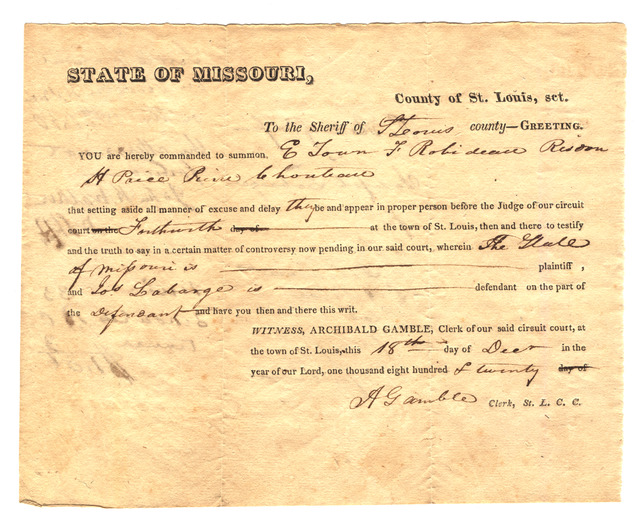 STATE OF MISSOURI,
County of St. Louis, sct.
To the Sheriff of St Louis county—GREETING.
YOU are hereby commanded to summon, E Town F Robideau
H Price Pierre Chouteau
that setting aside all manner of excuse and delay they be and appear in proper person before the Judge of our circuit
court on the Forthwith day of at the town of St. Louis, then and there to testify
and the truth to say in a certain matter of controversy now pending in our said court, wherein The State
of Missouri is plaintiff,
and Jos Labarge is defendant on the part of
the Defendant and have you then and there this writ.
WITNESS, ARCHIBALD GAMBLE, Clerk of our said circuit court, at
the town of St. Louis, this 18th day of Decr in the
year of our Lord, one thousand eight hundred & twenty day of
A Gamble Clerk, St. L. C. C.